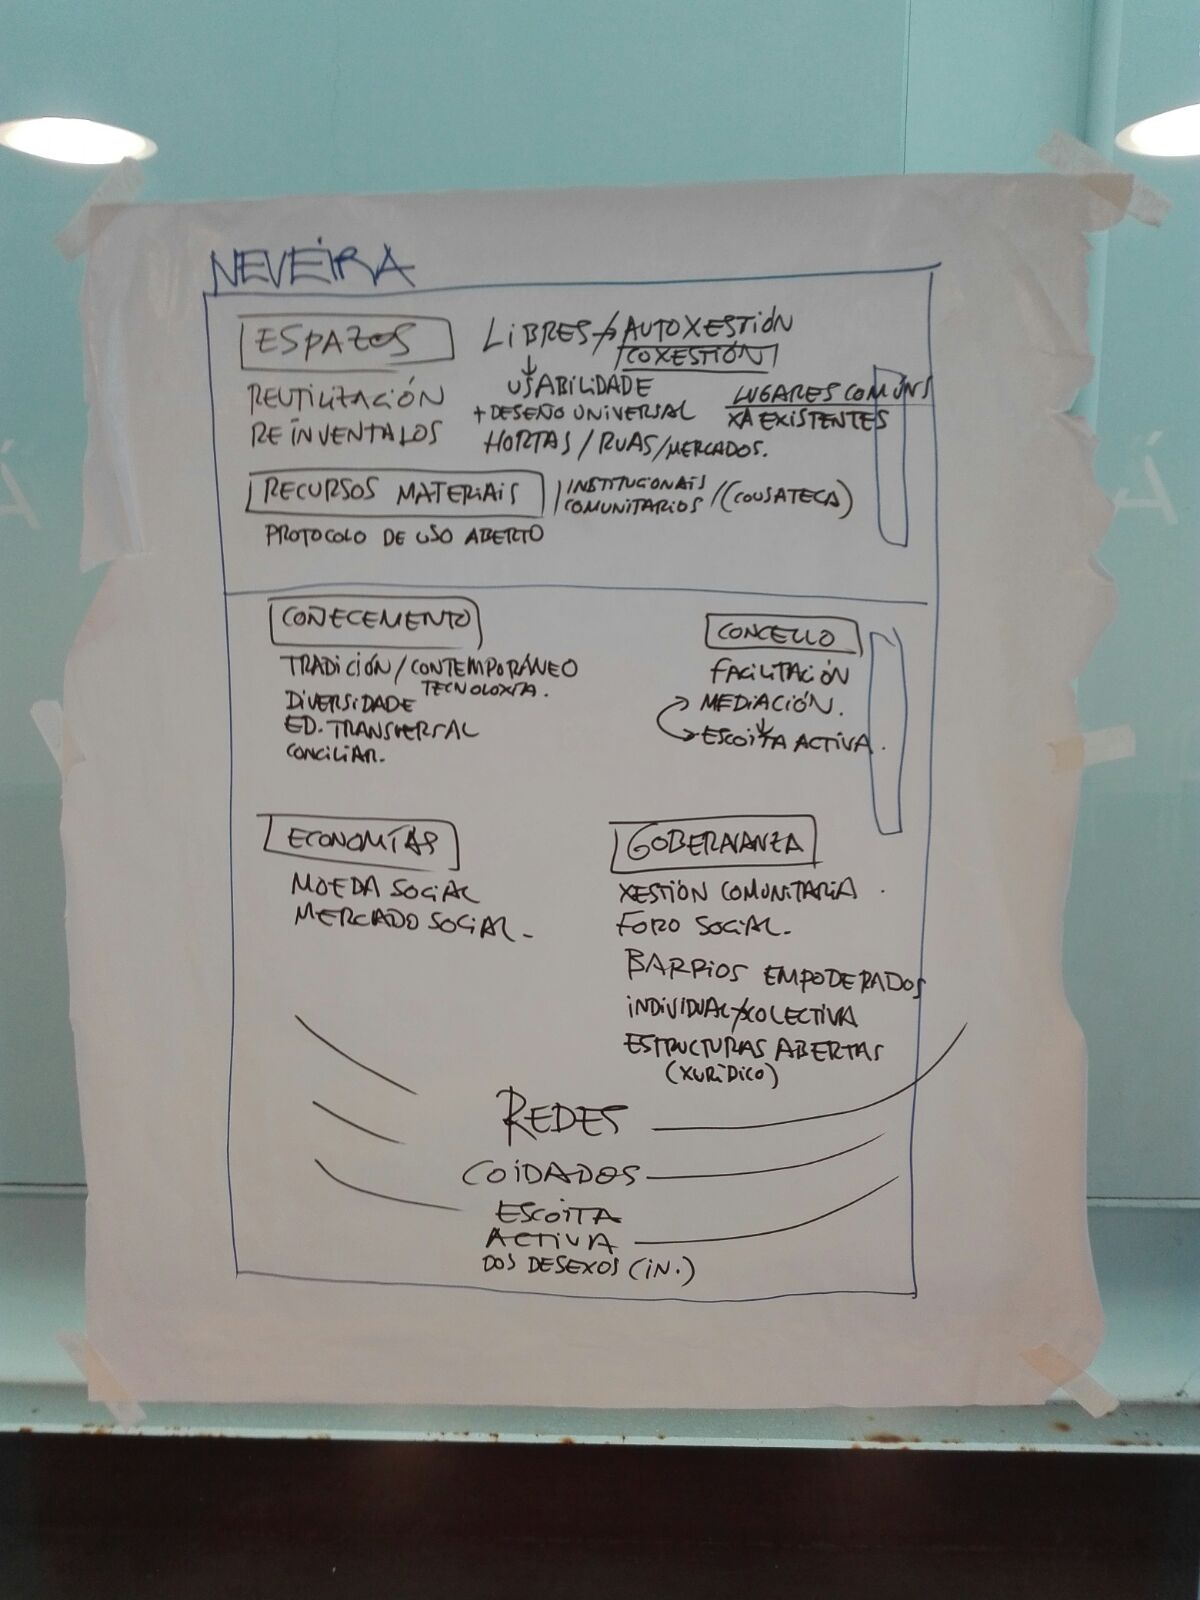 NEVEIRA
ESPAZOS
LIBRES → AUTOXESTIÓN
COXESTIÓN
REUTILIZACIÓN
REINVENTALOS
USABILIDADE
+ DESEÑO UNIVERSAL
HORTAS / RUAS / MERCADOS.
LUGARES COMÚNS
XA EXISTENTES
RECURSOS MATERIAIS
/ INSTITUCIONAIS
COMUNITARIOS / (COUSATECA)
PROTOCOLO DE USO ABERTO
COÑECEMENTO
TRADICIÓN / CONTEMPORÁNEO
TECNOLOXÍA.
DIVERSIDADE
ED. TRANSVERSAL
CONCILIAR.
CONCELLO
FACILITACIÓN
MEDIACIÓN.
ESCOITA ACTIVA.
ECONOMÍAS
MOEDA SOCIAL
MERCADO SOCIAL.
GOBERNANZA
XESTIÓN COMUNITARIA
FORO SOCIAL.
BARRIOS EMPODERADOS
INDIVIDUAL → COLECTIVA
ESTRUCTURAS ABERTAS
(XURÍDICO)
REDES
COIDADOS
ESCOITA
ACTIVA
DOS DESEXOS (IN.)